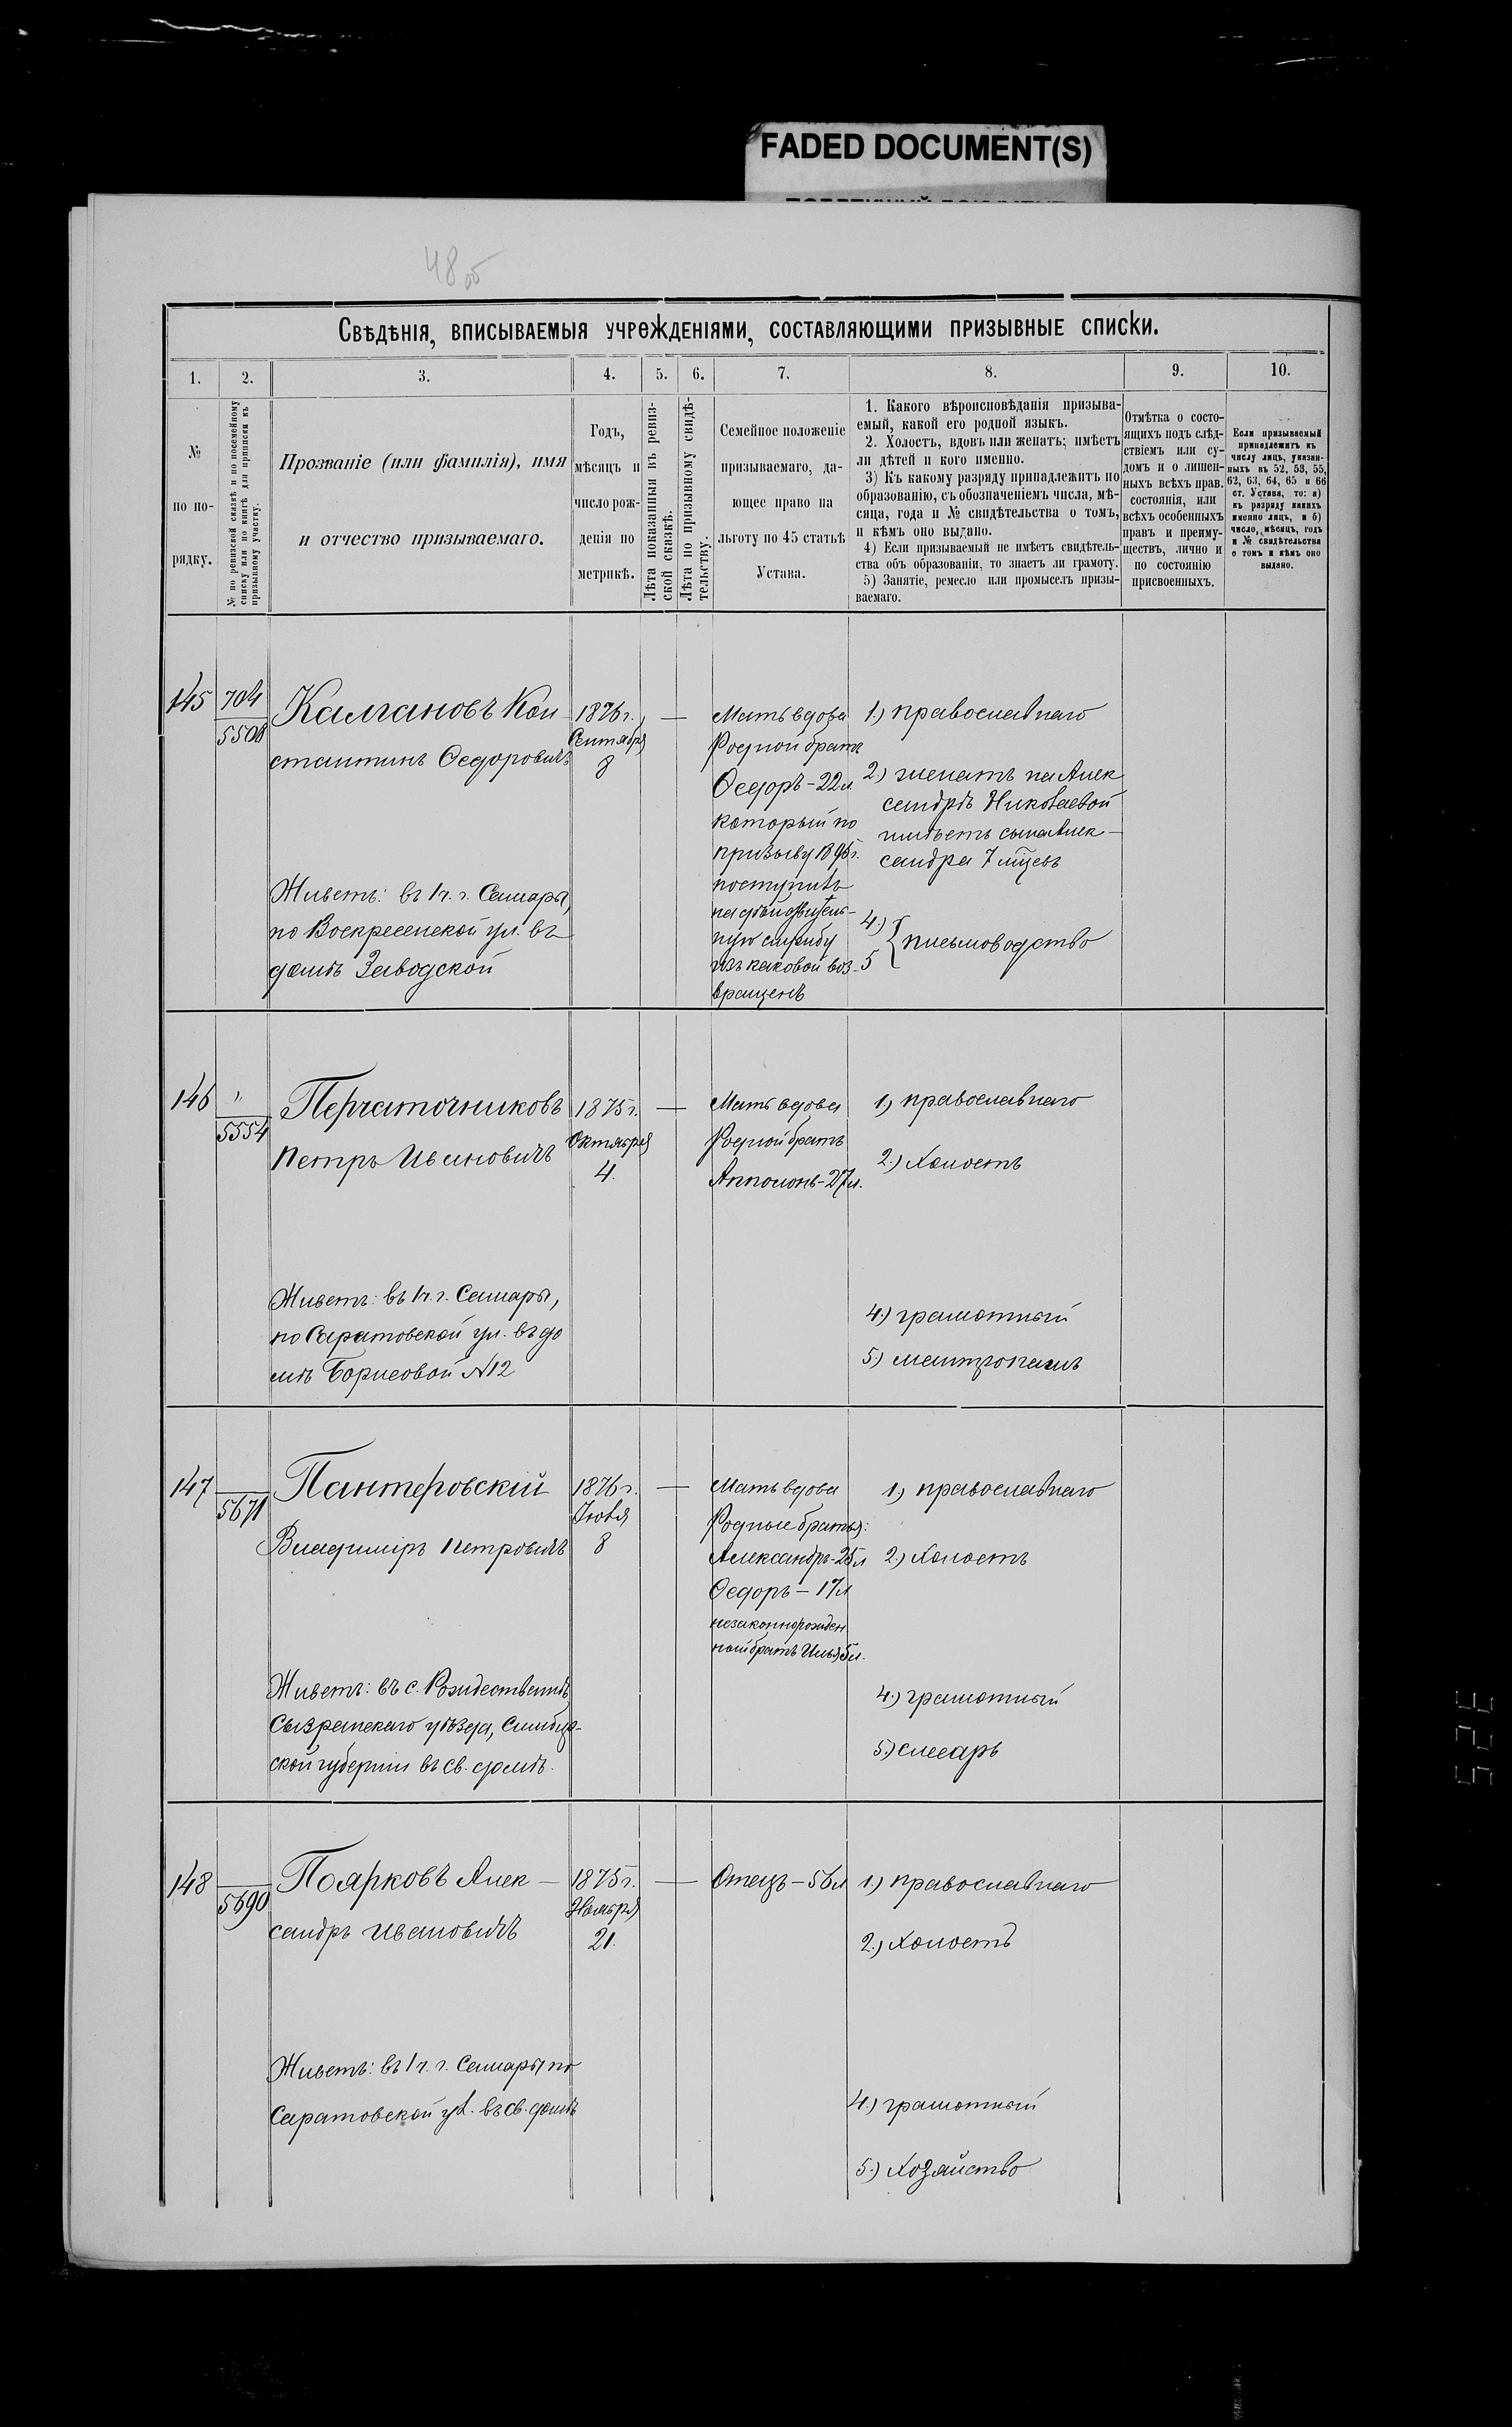 FADED DOCUMENT(S)
48 об
Свѣдѣнія, вписываемыя учрежденіями, составляющими призывные списки.
1. 2. 3. 4. 5. 6. 7. 8. 9. 10.
№
по по-
рядку.
№ по ревизской сказкѣ и по посемейному
списку или по книгѣ для приписки къ
призывному участку.
Прозваніе (или фамилія), имя
и отчество призываемаго.
Годъ,
мѣсяцъ и
число рож-
денія по
метрикѣ.
Лѣта показанныя въ ревиз-
ской сказкѣ.
Лѣта по призывному свидѣ-
тельству.
Семейное положеніе
призываемаго, да-
ющее право на
льготу по 45 статьѣ
Устава.
1. Какого вѣроисповѣданія призыва-
емый, какой его родной языкъ.
2. Холостъ, вдовъ или женатъ; имѣетъ
ли дѣтей и кого именно.
3) Къ какому разряду принадлежитъ по
образованію, съ обозначеніемъ числа, мѣ-
сяца, года и № свидѣтельства о томъ,
и кѣмъ оно выдано.
4) Если призываемый не имѣетъ свидѣтель-
ства объ образованіи, то знаетъ ли грамоту.
5) Занятіе, ремесло или промыселъ призы-
ваемаго.
Отмѣтка о состо-
ящихъ подъ слѣд-
ствіемъ или су-
домъ и о лишен-
ныхъ всѣхъ прав.
состоянія, или
всѣхъ особенныхъ
правъ и преиму-
ществъ, лично и
по состоянію
присвоенныхъ.
Если призываемый
принадлежитъ къ
числу лицъ, указан-
ныхъ въ 52, 53, 55,
62, 63, 64, 65 и 66
ст. Устава, то: а)
къ разряду какихъ
именно лицъ, и б)
число, мѣсяцъ, годъ
и № свидѣтельства
о томъ и кѣмъ оно
выдано.
145
704
5508
Калгановъ Кон-
стантинъ Ѳедоровичъ
Живетъ: въ 1 ч. г. Самары,
по Воскресенской ул. въ
домѣ Заводской
1876 г.
Сентября
8
Мать вдова
Родной братъ
Ѳедоръ – 22 л
который по
призыву 1895 г.
поступилъ
на дѣйствитель-
ную службу
изъ каковой воз-
вращенъ
1.) православнаго
2.) женатъ на Алек
сандрѣ Николаевой
имѣетъ сына Алек-
сандра 7 мѣсц.
4.)
5 { письмоводство
146
"
5554
Перчаточниковъ
Петръ Ивановичъ
Живетъ: въ 1 ч. г. Самары,
по Саратовской ул. въ до
мѣ Борисовой №12
1875 г.
Октября
4.
Мать вдова
Родной братъ
Апполонъ – 27 л.
1.) православнаго
2.) Холостъ
4.) грамотный
5.)
147
5671
Пантеровскій
Владиміръ Петровичъ
Живетъ: въ с. Рождественнѣ
Сызранскаго уѣзда, Симбир-
ской губерніи въ св. домѣ.
1876 г.
Іюля
8
Мать вдова
Родные братья:
Александръ – 25 л
Ѳедоръ – 17 л
незаконнорожден
ный братъ Илья 5 л.
1.) православнаго
2.) Холостъ
4.) грамотный
5.) слесарь
148
5690
Поярковъ Алек-
сандръ Ивановичъ
Живетъ: въ 1 ч. г. Самары по
Саратовской ул. въ св. домѣ
1875 г.
Ноября
21.
Отецъ – 56 л
1.) православнаго
2.) Холостъ
4.) грамотный
5.) Хозяйство
325